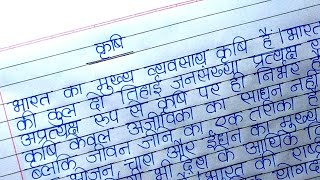 कृषि
भारत का मुख्य व्यवसाय कृषि है। भारत
की कुल दो तिहाई जनसंख्या प्रत्यक्ष
अप्रत्यक्ष रूप से कृषि पर ही निर्भर है
कृषि केवल अजीविका का साधन नहीं
बल्कि जीवन जीने का एक तरीका है
भोजन, चारा और ईंधन का मुख्य
भी देश के आर्थिक